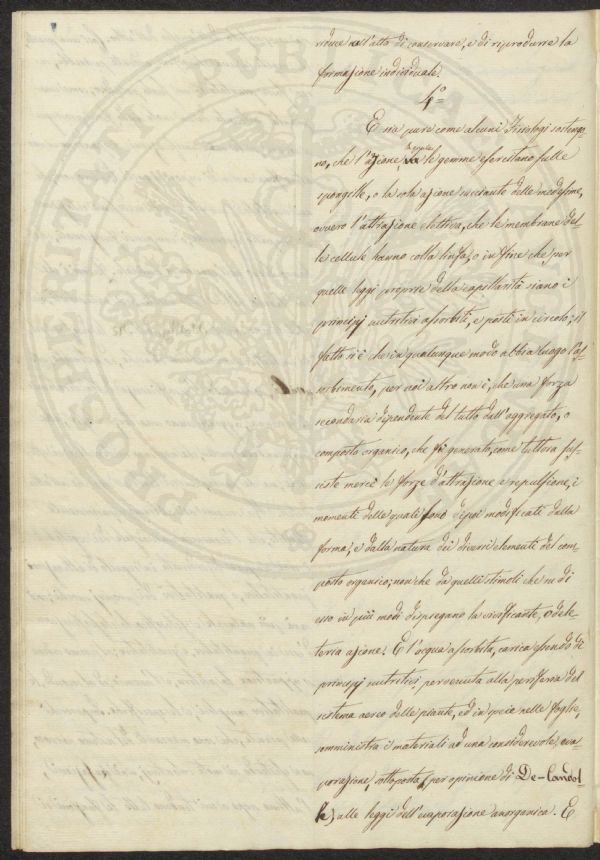 riduce all'atto di conservare, e di riprodurre la
formazione individuale.
4º
E sia pure come alcuni Fisiologi sostengo-
no, che l'azione, la quale le gemme esercitano sulle
spongette, o la sola azione succiante delle medesime,
ovvero l'attrazione elettiva, che le membrane del-
le cellule hanno colla linfa; o infine che per
quelle leggi proprie della capillarità siano i
principj nutritivi assorbiti, e posti in circolo; il
fatto si è che in qualunque modo abbia luogo l'as-
sorbimento, per noi altro non è, che una forza
secondaria dipendente del tutto dall'aggregato, o
composto organico, che fu generato, come tuttora sus-
siste mercè le forze d'attrazione e repulsione, i
momenti delle quali sono dipoi modificati dalla
forma, e dalla natura dei diversi elementi del com-
posto organico; non che da quelli stimoli che su di
esso in più modi dispregano la vivificante, o dele-
teria azione. E l'acqua assorbita, carica essendo di
principj nutritivi pervenuta alla periferia del
sistema aereo delle piante, ed in specie nelle foglie,
somministra i materiali ad una considerevole eva-
porazione, sottoposta (per opinione di De-Candol-
le) alle leggi dell'evaporazione anorganica. E
PROSPERITATI PUBLICAE